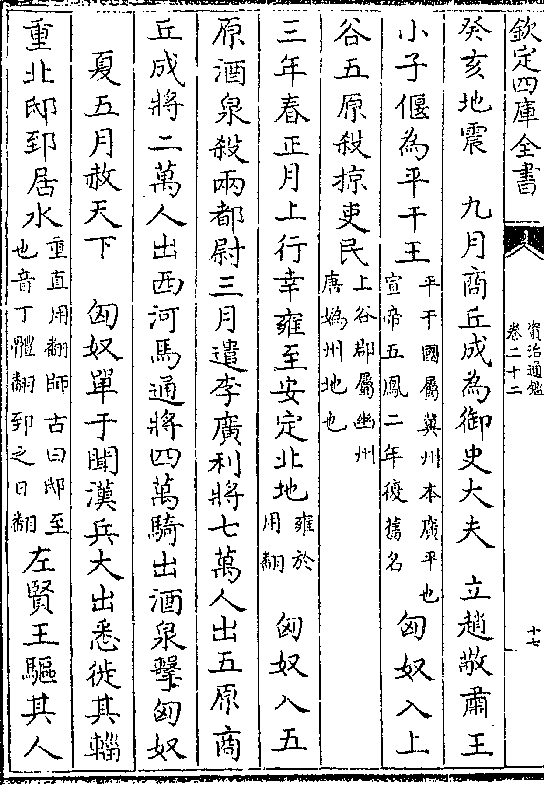 欽定四庫全書
資治通鑑
卷二十二
十七
癸亥地震　九月商丘成為御史大夫　立趙敬肅王
小子偃為平干王平干國屬冀州本廣平也宣帝五鳳二年復舊名　匈奴入上
谷五原殺掠吏民上谷郡屬幽州唐媯州地也
三年春正月上行幸雍至安定北地雍於用翻　匈奴入五
原酒泉殺兩都尉三月遣李廣利將七萬人出五原商
丘成將二萬人出西河馬通將四萬騎出酒泉擊匈奴
夏五月赦天下　匈奴單于聞漢兵大出悉徙其輜
重北邸郅居水重直用翻師古曰邸至也音丁禮翻郅之日翻左賢王驅其人